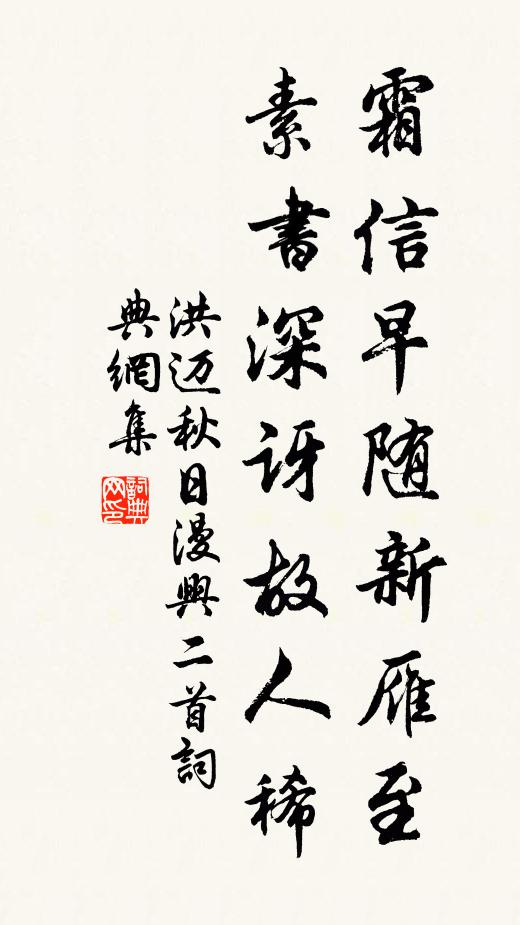 霜信早随新雁至
素書深讶故人稀
洪迈秋日漫興二首詞
典網集
詞典
网印